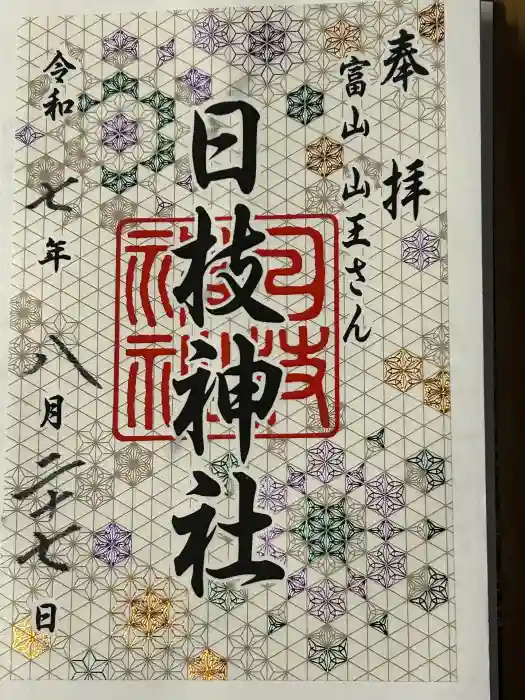 奉拝
富山 山王さん
日枝神社
令和七年八月二十七日